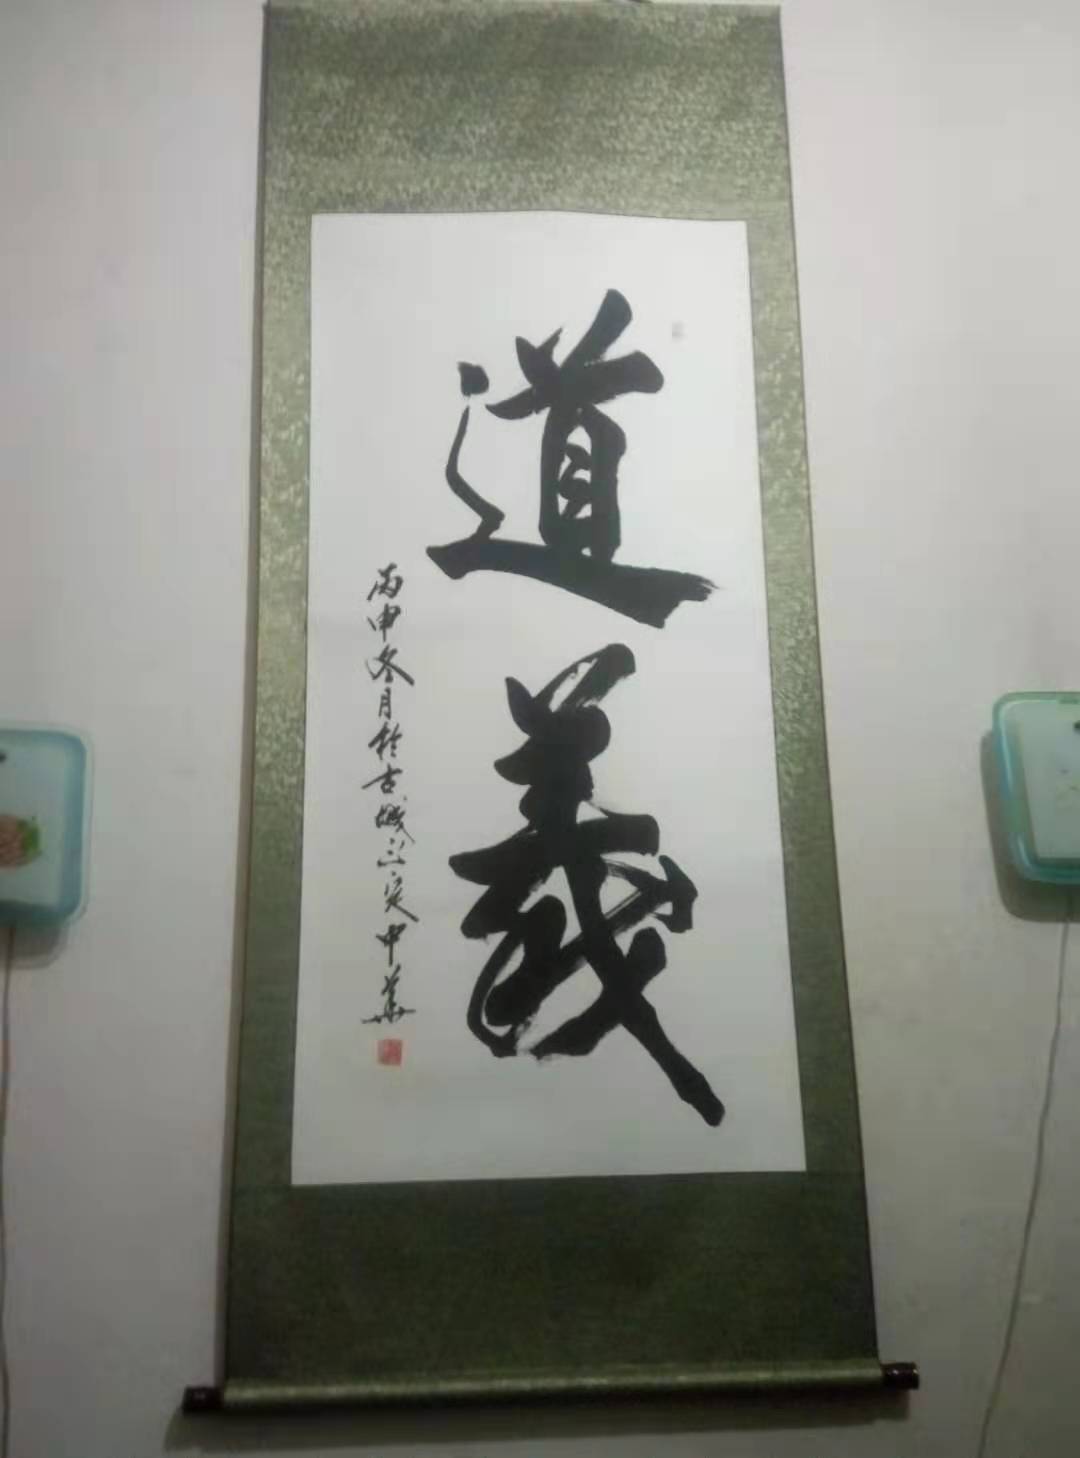 道義
丙申冬月於古城正定中華